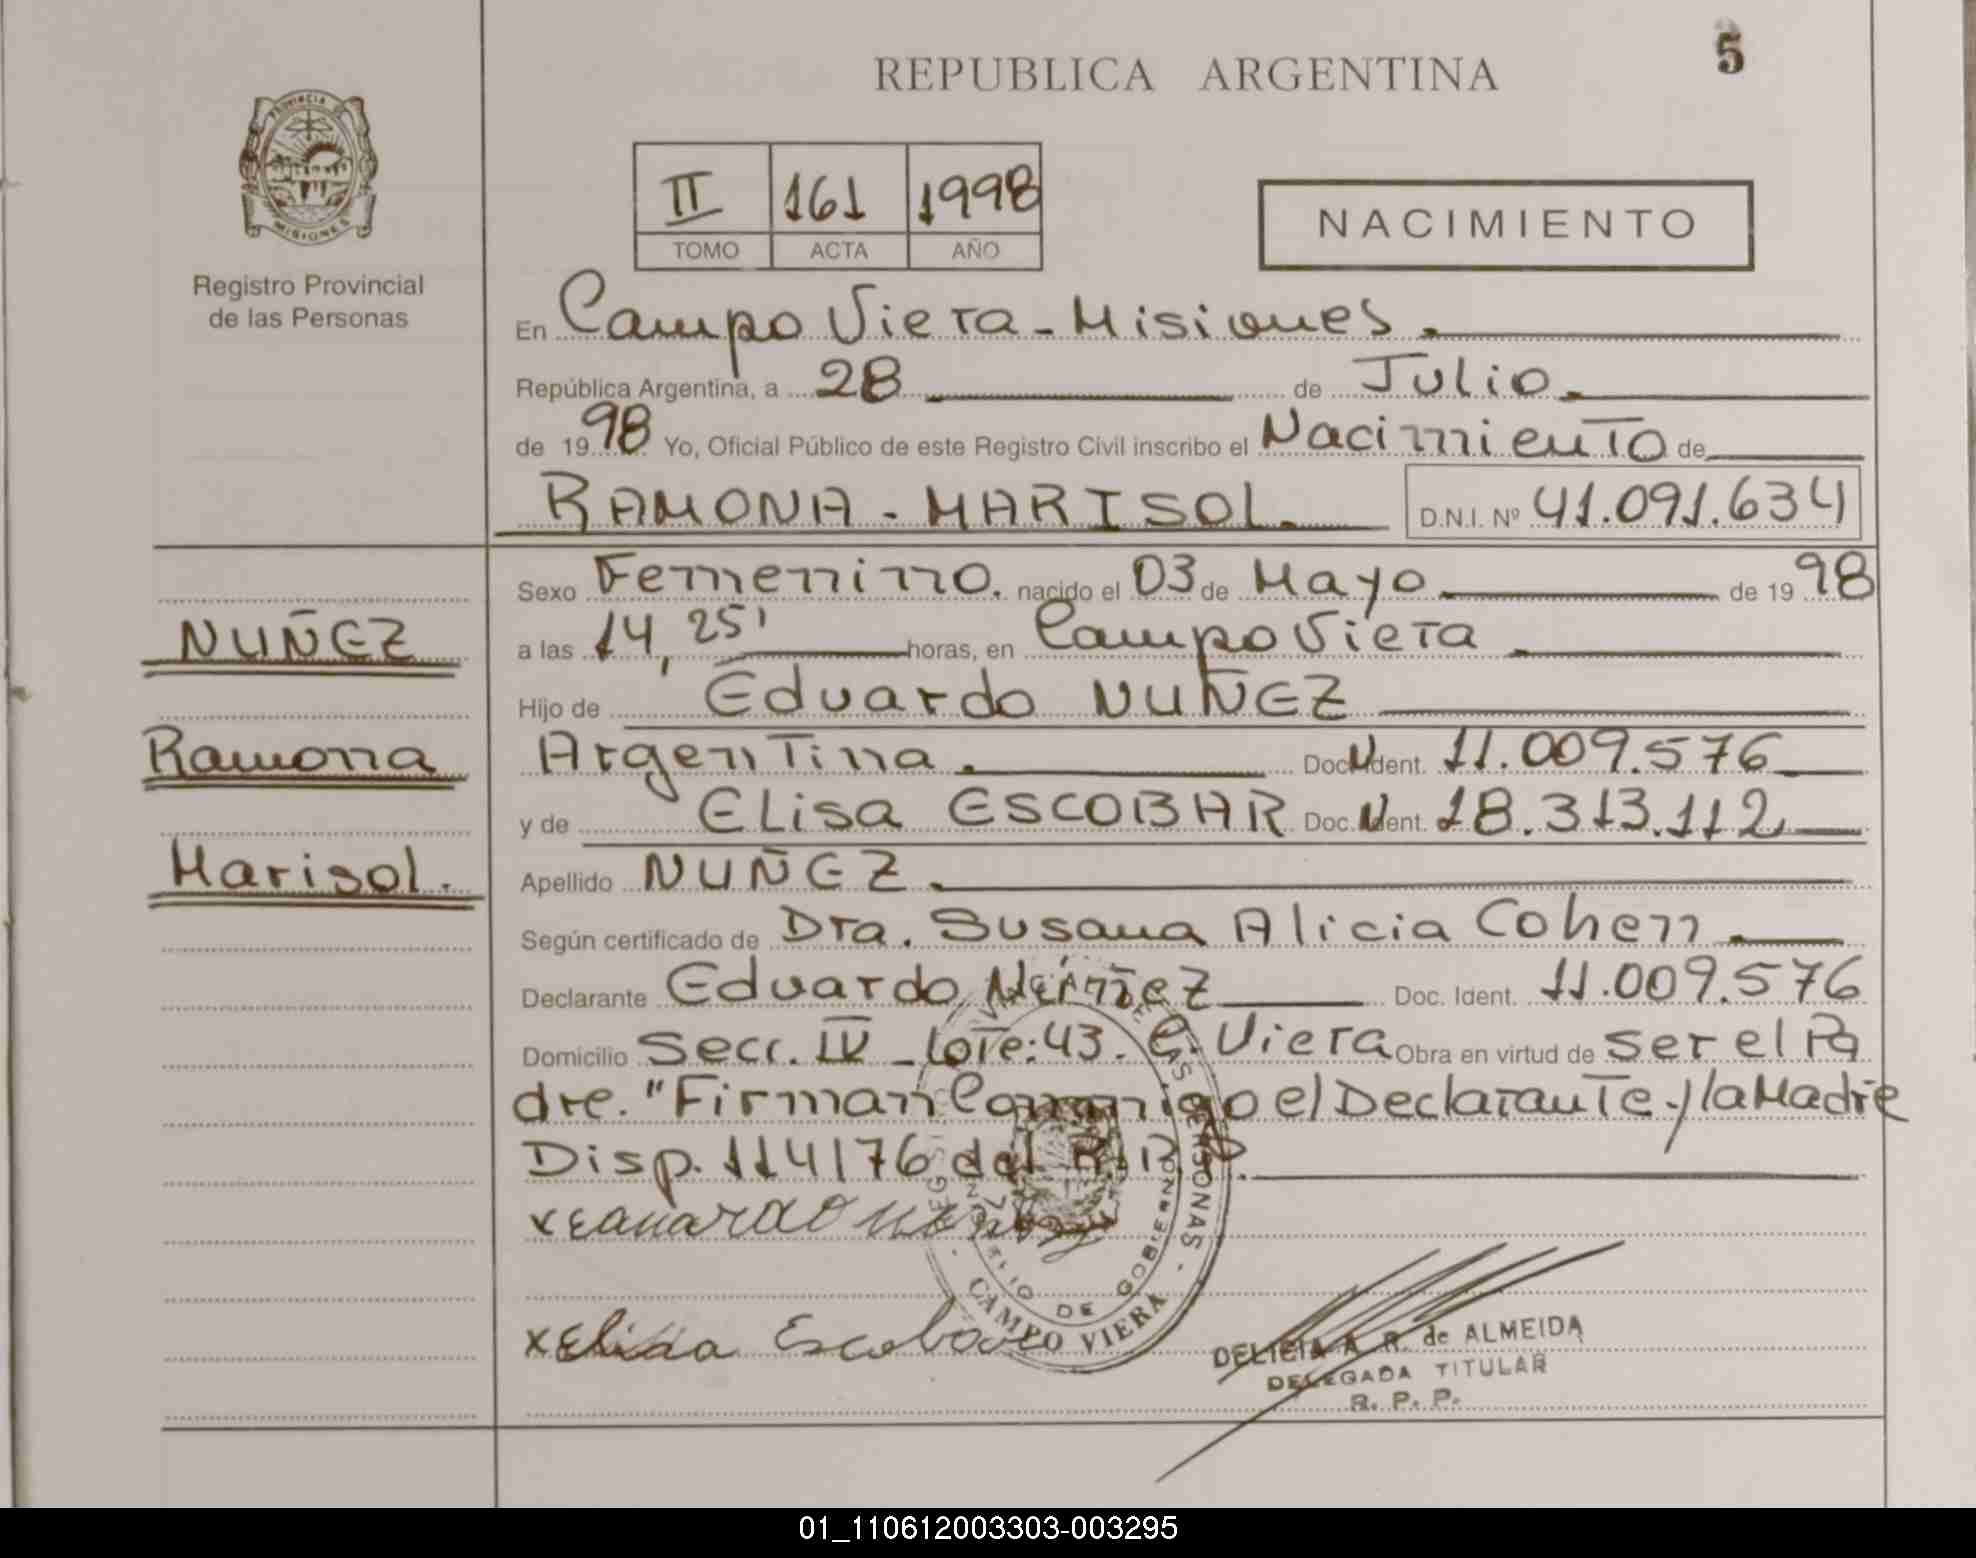 5
REPUBLICA ARGENTINA
PROVINCIA DE
MISIONES
Registro Provincial
de las Personas
II 161 1998
TOMO ACTA AÑO
NACIMIENTO
En Campo Viera - Misiones.
República Argentina, a 28 de Julio.
de 1998 Yo, Oficial Público de este Registro Civil inscribo el Nacimiento de
RAMONA - MARISOL. D.N.I. Nº 41.091.634
Sexo Femenino. nacido el 03 de Mayo de 1998
NUÑEZ
a las 14,25' horas, en Campo Viera
Hijo de Eduardo NUÑEZ
Ramona
Argentina. Doc. Ident. 11.009.576
y de ELisa ESCOBAR Doc. Ident. 18.313.112
Marisol.
Apellido NUÑEZ.
Según certificado de Dra. Susana Alicia Cohen.
Declarante Eduardo Núñez Doc. Ident. 11.009.576
Domicilio Secc. IV - Lote: 43. C. Viera Obra en virtud de ser el Pa
dre. "Firman Conmigo el Declarante y la Madre
Disp. 114/76 del R.P.P.
x Eduardo nuñez
x Elisa Escobar
DE LAS PERSONAS
DE GOBIERNO
CAMPO VIERA
DELICIA A. R. de ALMEIDA
DELEGADA TITULAR
R. P. P.
01_110612003303-003295